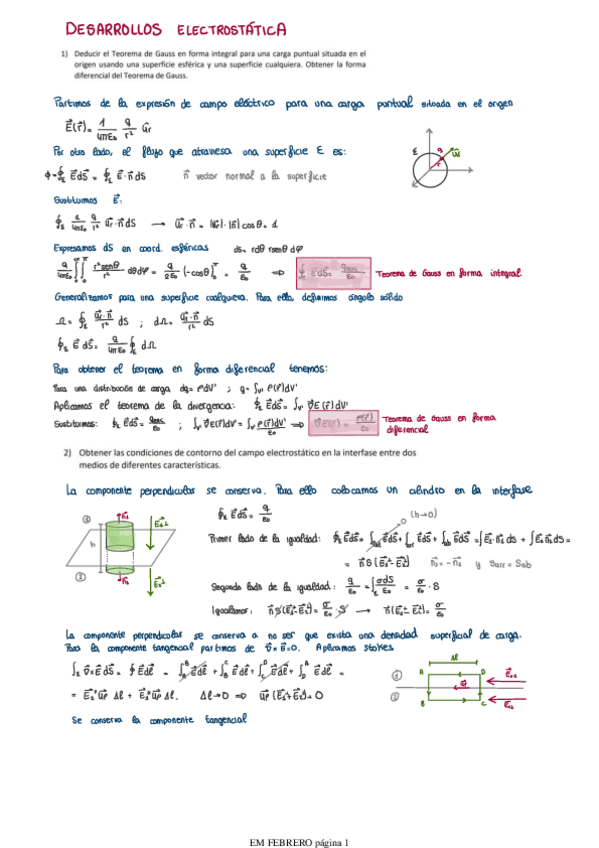 DESARROLLOS ELECTROSTÁTICA
1) Deducir el Teorema de Gauss en forma integral para una carga puntual situada en el
origen usando una superficie esférica y una superficie cualquiera. Obtener la forma
diferencial del Teorema de Gauss.
Partimos de la expresión de campo eléctrico para una carga puntual situada en el origen
E⃗(r⃗) = 1/4πε₀ q/r² ûr
Por otro lado, el flujo que atraviesa una superficie Σ es:
ϕ = ∮Σ E⃗dS⃗ = ∮Σ E⃗·n⃗ dS n⃗ vector normal a la superficie
Sustituimos E⃗:
∮Σ 1/4πε₀ q/r² u⃗r·n⃗ dS → u⃗r·n⃗ = |u⃗r|·|n⃗| cosθ = 1
Expresamos dS en coord. esféricas dS = rdθ rsenθ dφ
q/4πε₀ ∫∫ r²senθ/r² dθdφ = q/2ε₀ (-cosθ)₀^π = q/ε₀ ⇒ ∮Σ E⃗dS⃗ = qenc/ε₀ Teorema de Gauss en forma integral
Generalizamos para una superficie cualquiera. Para ello, definimos ángulo sólido
Ω = ∮Σ u⃗r·n⃗/r² dS ; dΩ = u⃗r·n⃗/r² dS
∮Σ E⃗ dS⃗ = q/4πε₀ ∮Σ dΩ
Para obtener el teorema en forma diferencial tenemos:
Para una distribución de carga dq = ρdV' ; q = ∫V' ρ(r⃗)dV'
Aplicamos el teorema de la divergencia: ∮Σ E⃗dS⃗ = ∫V' ∇E(r⃗)dV'
Sustituimos: ∮Σ E⃗dS⃗ = qenc/ε₀ ; ∫V' ∇E(r⃗)dV' = ∫V' ρ(r⃗)dV'/ε₀ ⇒ ∇E(r⃗) = ρ(r⃗)/ε₀ Teorema de Gauss en forma
diferencial
2) Obtener las condiciones de contorno del campo electrostático en la interfase entre dos
medios de diferentes características.
La componente perpendicular se conserva. Para ello colocamos un cilindro en la interfase
∮Σ E⃗dS⃗ = q/ε₀ (h→0)
Primer lado de la igualdad:
Segundo lado de la igualdad: q/ε₀ = ∫ σdS/ε₀ = σ/ε₀ · S
Igualamos: n⃗S(E⃗₁-E⃗₂) = σ/ε₀ S → n⃗(E⃗₁-E⃗₂) = σ/ε₀
La componente perpendicular se conserva a no ser que exista una densidad superficial de carga.
Para la componente tangencial partimos de ∇×E⃗=0. Aplicamos Stokes
Se conserva la componente tangencial
EM FEBRERO página 1